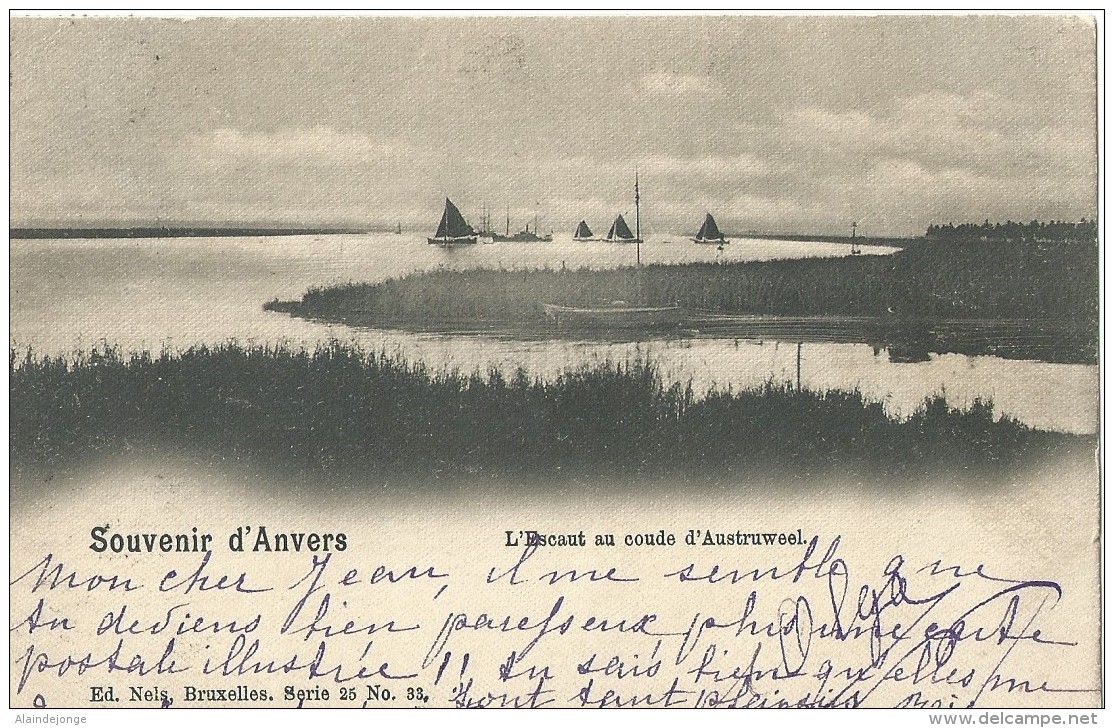 Souvenir d'Anvers
L'Escaut au coude d'Austruweel.
Mon cher Jean, il me semble que
tu deviens bien paresseux, plus une carte
postale illustrée !! tu sais bien qu'elles me
font tant plaisir
Ed. Nels, Bruxelles. Serie 25 No. 33.
© Alaindejonge
www.delcampe.net